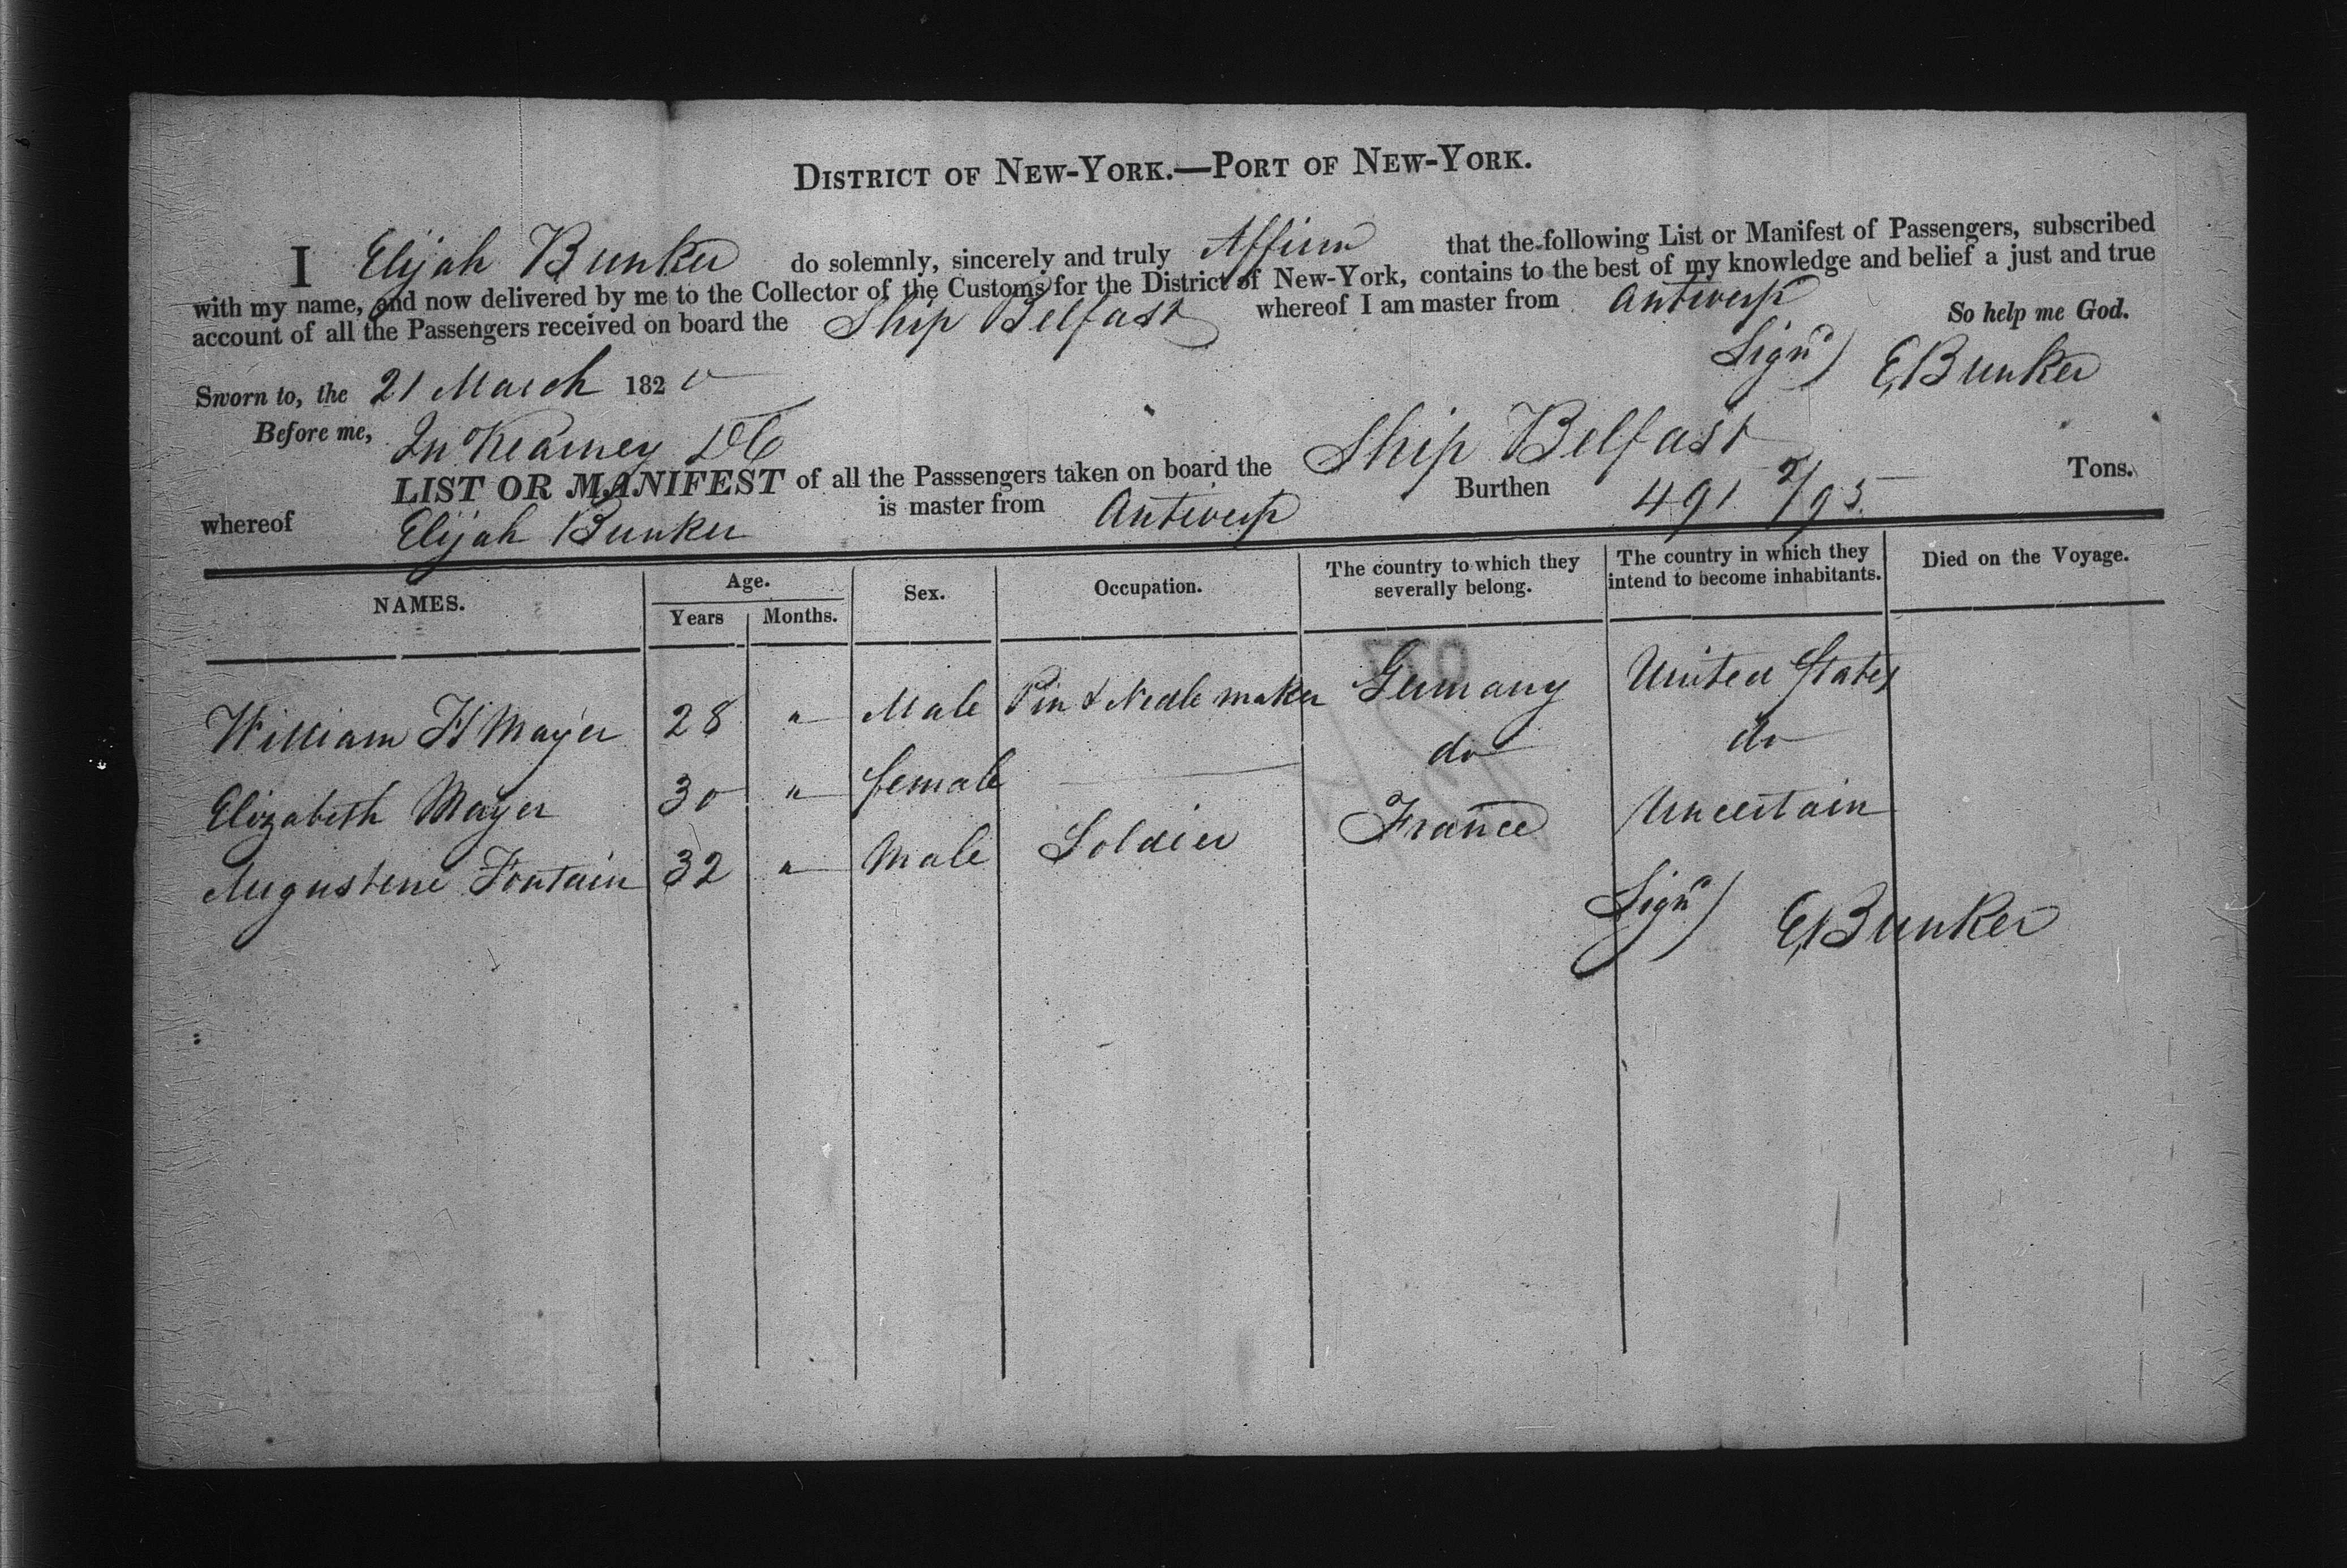 DISTRICT OF NEW-YORK.—PORT OF NEW-YORK.
I Elijah Bunker do solemnly, sincerely and truly Affirm that the following List or Manifest of Passengers, subscribed
with my name, and now delivered by me to the Collector of the Customs for the District of New-York, contains to the best of my knowledge and belief a just and true
account of all the Passengers received on board the Ship Belfast whereof I am master from Antwerp
So help me God.
Sign'd) E, Bunker
Sworn to, the 21 March 1820
Before me, Jn Kearney DC
LIST OR MANIFEST of all the Passsengers taken on board the Ship Belfast
whereof Elijah Bunker is master from Antwerp Burthen 491 2/95 Tons.
NAMES. Age. Years Months. Sex. Occupation. The country to which they severally belong. The country in which they intend to become inhabitants. Died on the Voyage.
William H Mayer 28 " Male Pin & Nedle maker Germany United States
Elizabeth Mayer 30 " female — do do
Augustene Fontain 32 " Male Soldier France Uncertain
Sign'd) E, Bunker